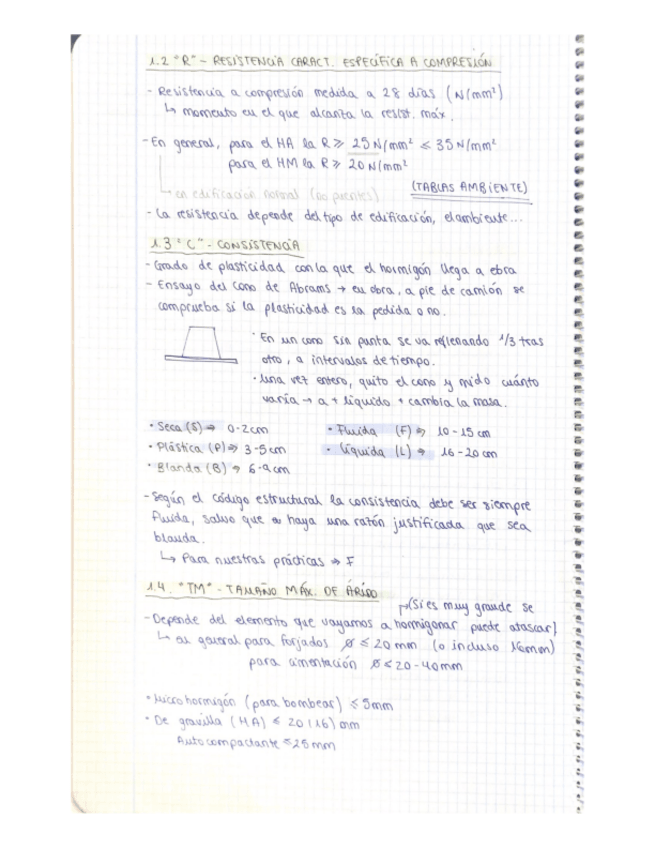 1.2 "R" - RESISTENCIA CARACT. ESPECÍFICA A COMPRESIÓN
- Resistencia a compresión medida a 28 días (N/mm²)
↳ momento en el que alcanza la resist. máx.
- En general, para el HA la R ≥ 25 N/mm² ≤ 35 N/mm²
para el HM la R ≥ 20 N/mm²
↳ en edificación normal (no puentes)
(TABLAS AMBIENTE)
- La resistencia depende del tipo de edificación, el ambiente...
1.3 "C" - CONSISTENCIA
- Grado de plasticidad con la que el hormigón llega a obra
- Ensayo del Cono de Abrams → en obra, a pie de camión se
comprueba si la plasticidad es la pedida o no.
· En un cono sin punta se va rellenando 1/3 tras
otro, a intervalos de tiempo.
· Una vez entero, quito el cono y mido cuánto
varía → a + líquido + cambia la masa.
· Seca (S) ⇒ 0-2cm
· Plástica (P) ⇒ 3-5cm
· Blanda (B) ⇒ 6-9cm
· Fluida (F) ⇒ 10-15 cm
· Líquida (L) ⇒ 16-20 cm
- Según el código estructural la consistencia debe ser siempre
fluida, salvo que haya una razón justificada que sea
blanda.
↳ Para nuestras prácticas ⇒ F
1.4. "TM" - TAMAÑO MÁX. DE ÁRIDO
(Si es muy grande se
puede atascar)
- Depende del elemento que vayamos a hormigonar
↳ en general para forjados ø ≤ 20 mm (o incluso 16mm)
para cimentación ø ≤ 20-40mm
· Microhormigón (para bombear) ≤ 5mm
· De gravilla (HA) ≤ 20 (16) mm
Autocompactante ≤ 25mm